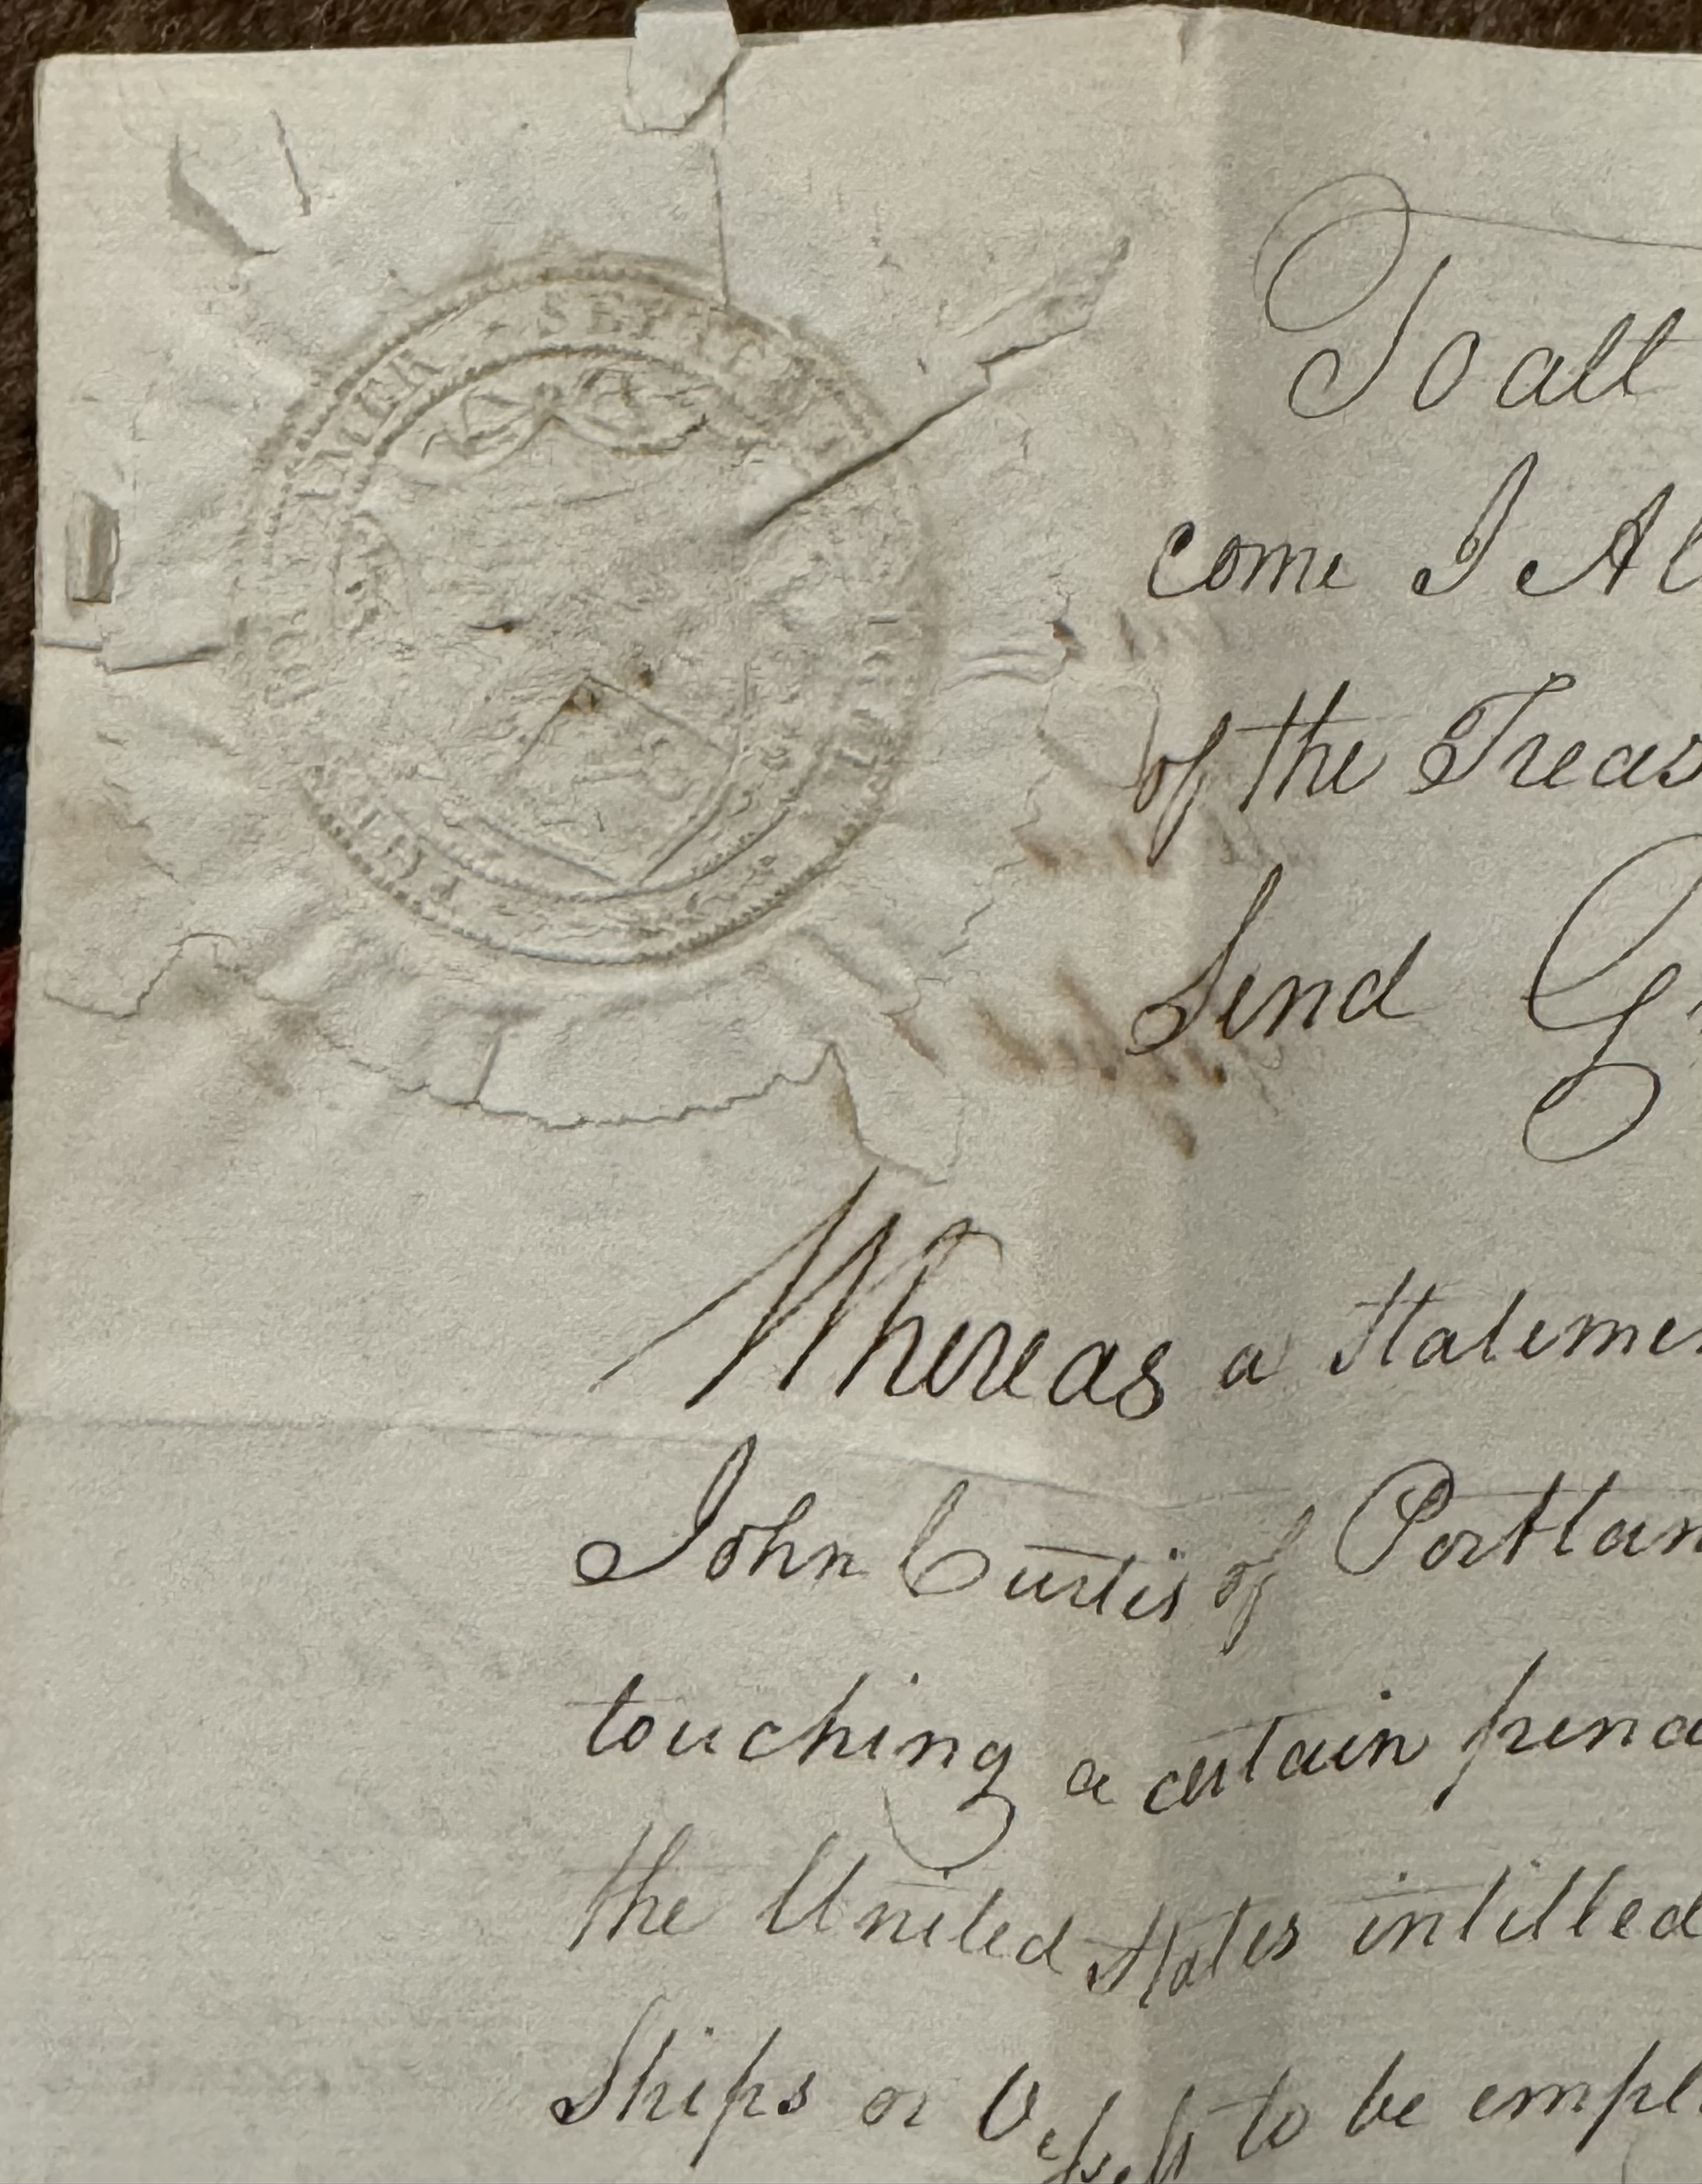 AMER · SEPTENT
To all
come I Al
of the Treas
Send G
Whereas a Stateme
John Curtis of Portlan
touching a certain pena
the United States intitled
Ships or Vessels to be empl